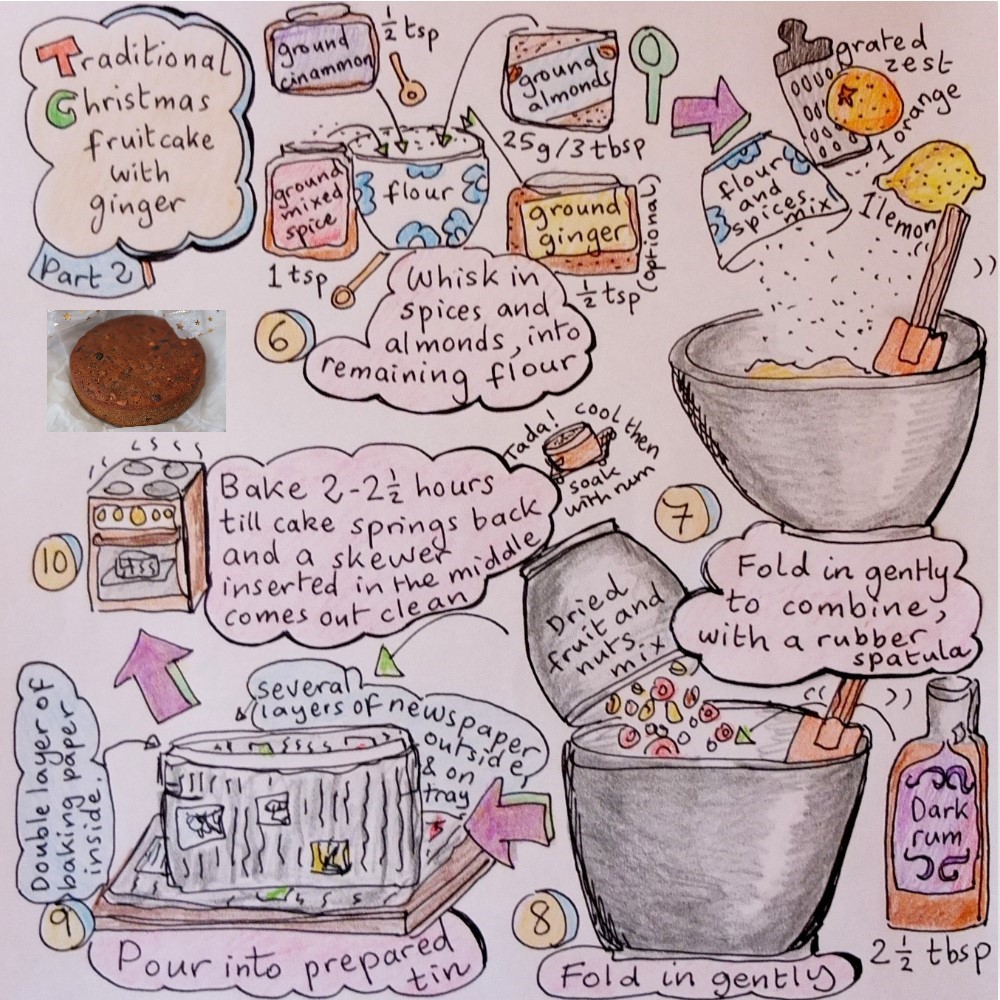 Traditional
Christmas
fruitcake
with
ginger
Part 2
ground
cinammon
1/2 tsp
ground
almonds
25g/3 tbsp
ground
mixed
spice
1 tsp
flour
ground
ginger
1/2 tsp (optional)
6
Whisk in
spices and
almonds, into
remaining flour
grated
zest
1 orange
1 lemon
flour
and
spices
mix
7
Fold in gently
to combine,
with a rubber
spatula
Dried
fruit and
nuts
mix
Dark
rum
2 1/2 tbsp
8
Fold in gently
several
layers of newspaper
outside,
& on
tray
Double layer of
baking paper
inside.
9
Pour into prepared
tin
10
Bake 2-2 1/2 hours
till cake springs back
and a skewer
inserted in the middle
comes out clean
Tada!
cool then
soak
with rum